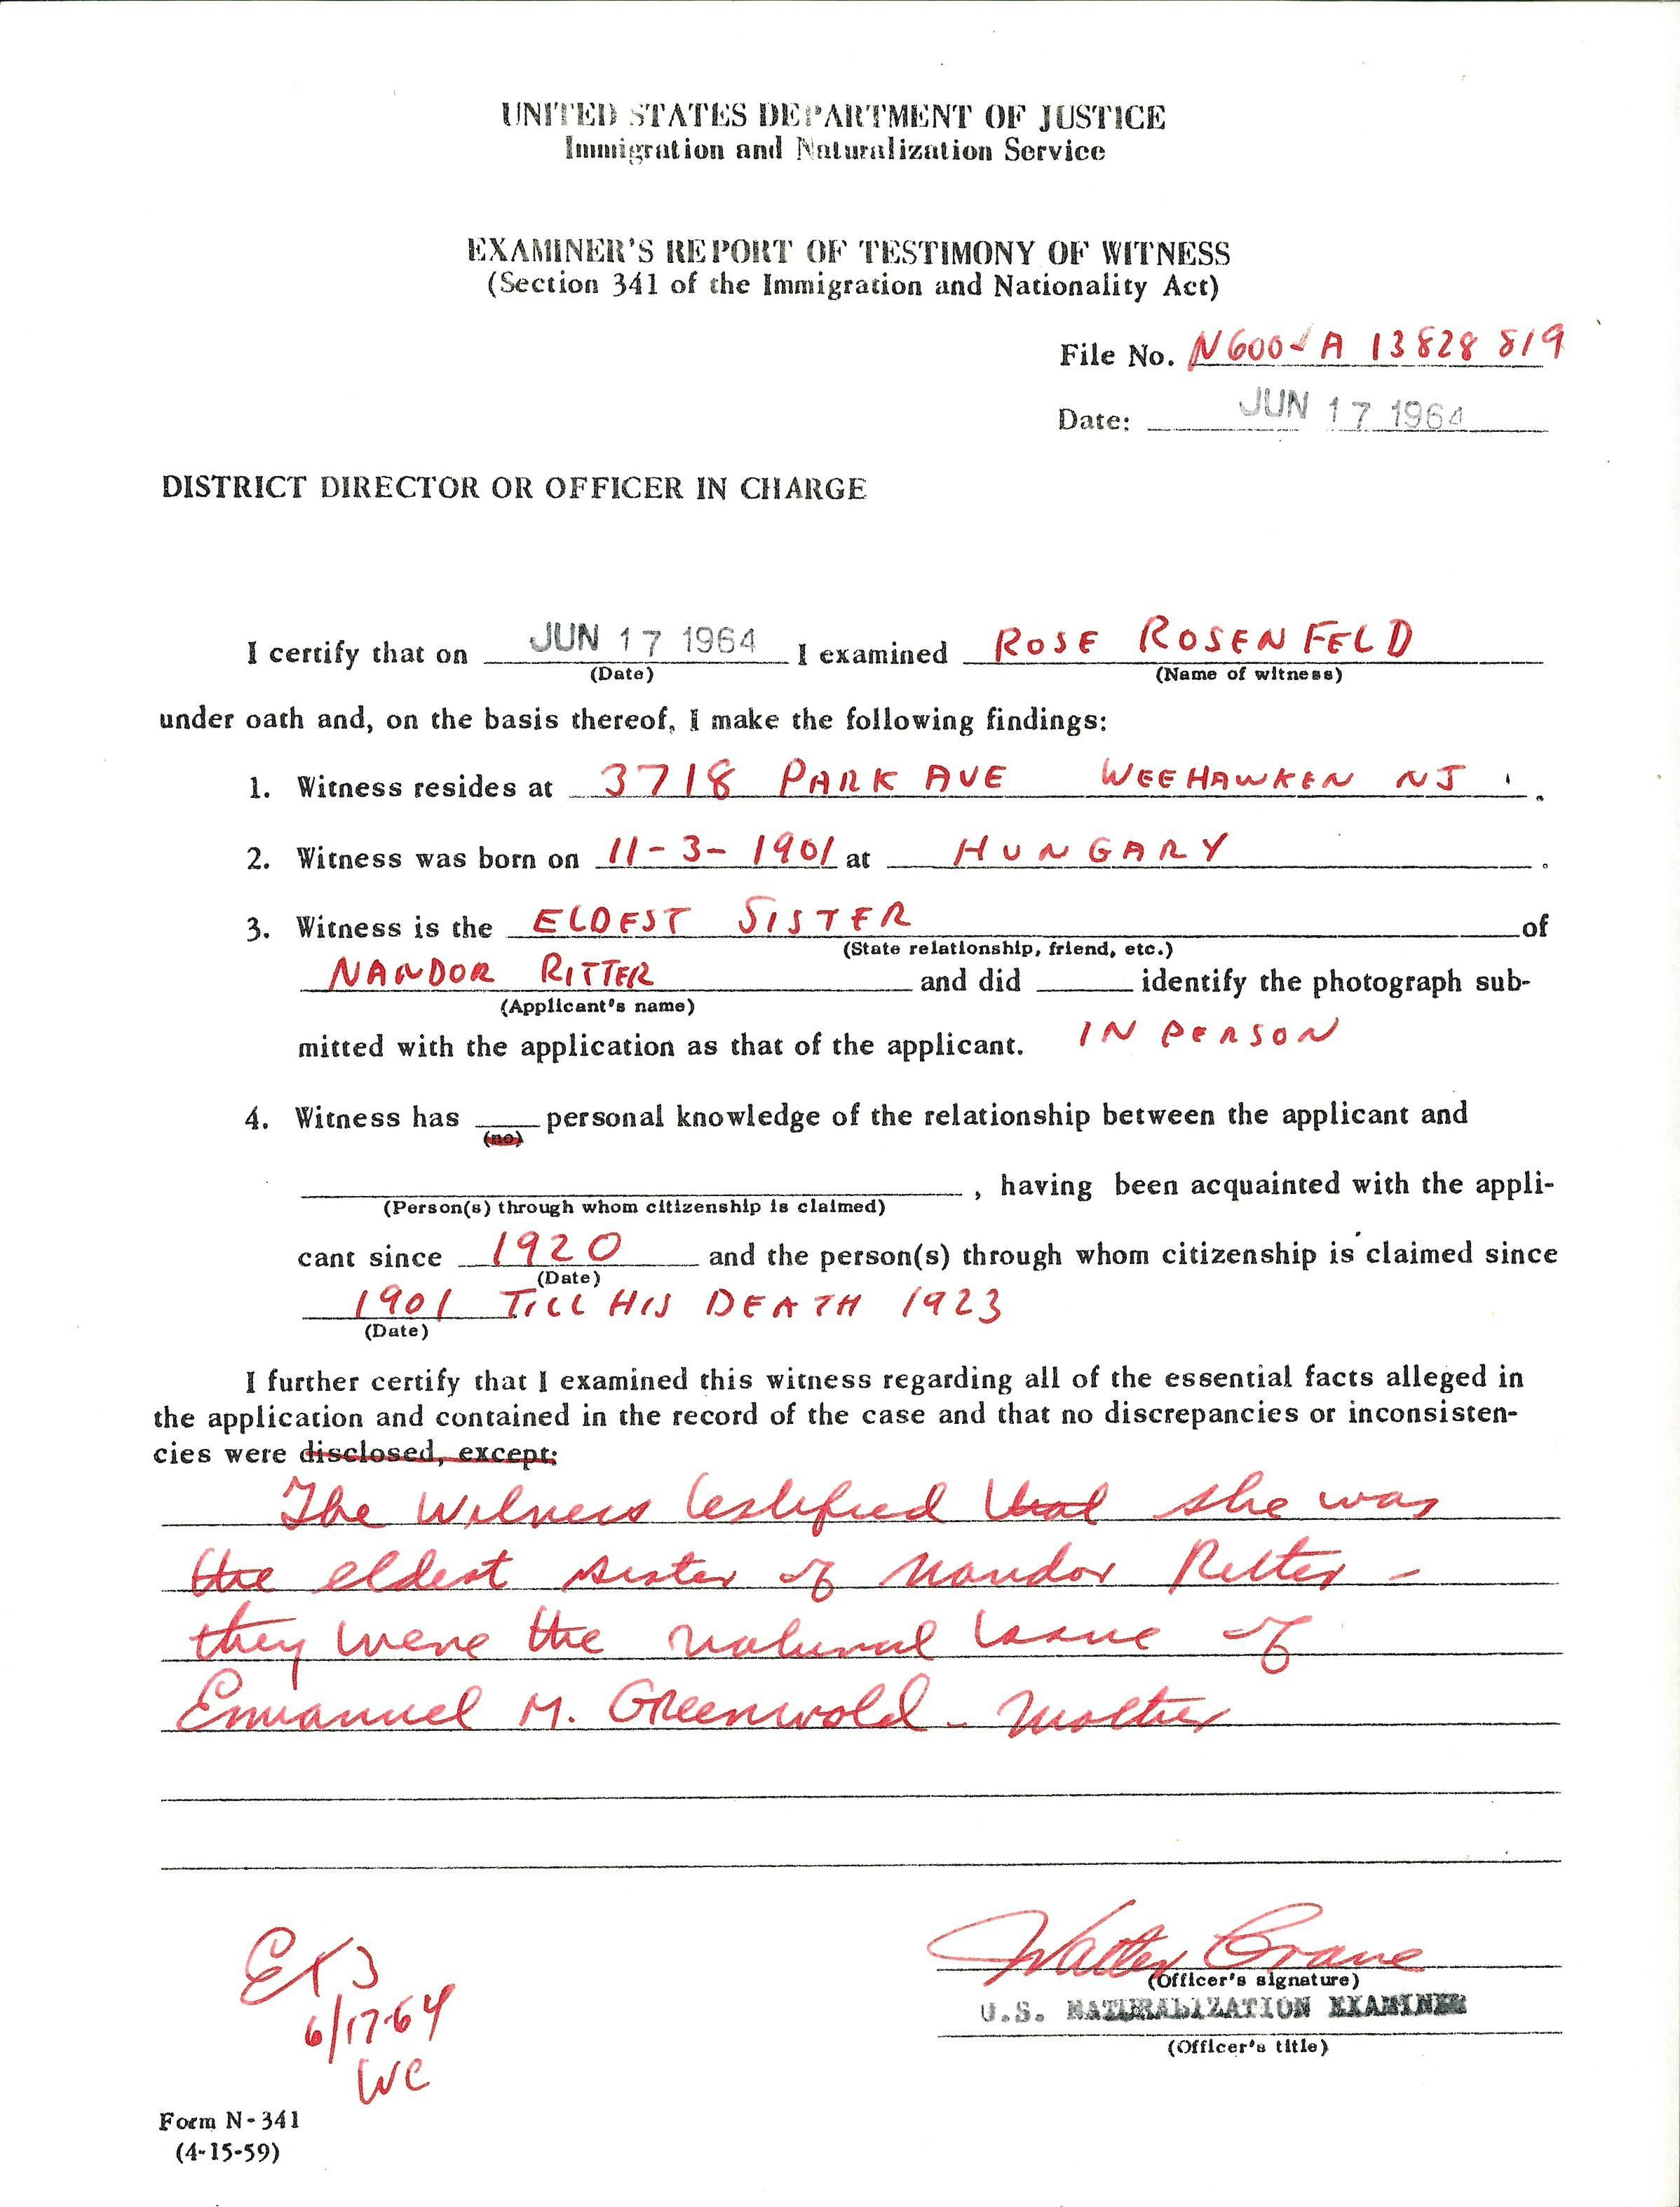 UNITED STATES DEPARTMENT OF JUSTICE
Immigration and Naturalization Service
EXAMINER'S REPORT OF TESTIMONY OF WITNESS
(Section 341 of the Immigration and Nationality Act)
File No. N600-A 13828 819
Date: JUN 17 1964
DISTRICT DIRECTOR OR OFFICER IN CHARGE
I certify that on JUN 17 1964 I examined ROSE ROSENFELD
(Date) (Name of witness)
under oath and, on the basis thereof, I make the following findings:
1. Witness resides at 3718 PARK AVE WEEHAWKEN NJ.
2. Witness was born on 11-3-1901 at HUNGARY.
3. Witness is the ELDEST SISTER of
(State relationship, friend, etc.)
NANDOR RITTER and did identify the photograph sub-
(Applicant's name)
mitted with the application as that of the applicant. IN PERSON
4. Witness has personal knowledge of the relationship between the applicant and
(no)
, having been acquainted with the appli-
(Person(s) through whom citizenship is claimed)
cant since 1920 and the person(s) through whom citizenship is claimed since
(Date)
1901 TILL HIS DEATH 1923
(Date)
I further certify that I examined this witness regarding all of the essential facts alleged in
the application and contained in the record of the case and that no discrepancies or inconsisten-
cies were disclosed, except:
The Witness testified that she was
the eldest sister of Nandor Ritter -
they were the natural issue of
Emmanuel M. Greenwold - Mother
Walter Crane
(Officer's signature)
U.S. NATURALIZATION EXAMINER
(Officer's title)
Ex 3
6/17-64
WC
Form N-341
(4-15-59)